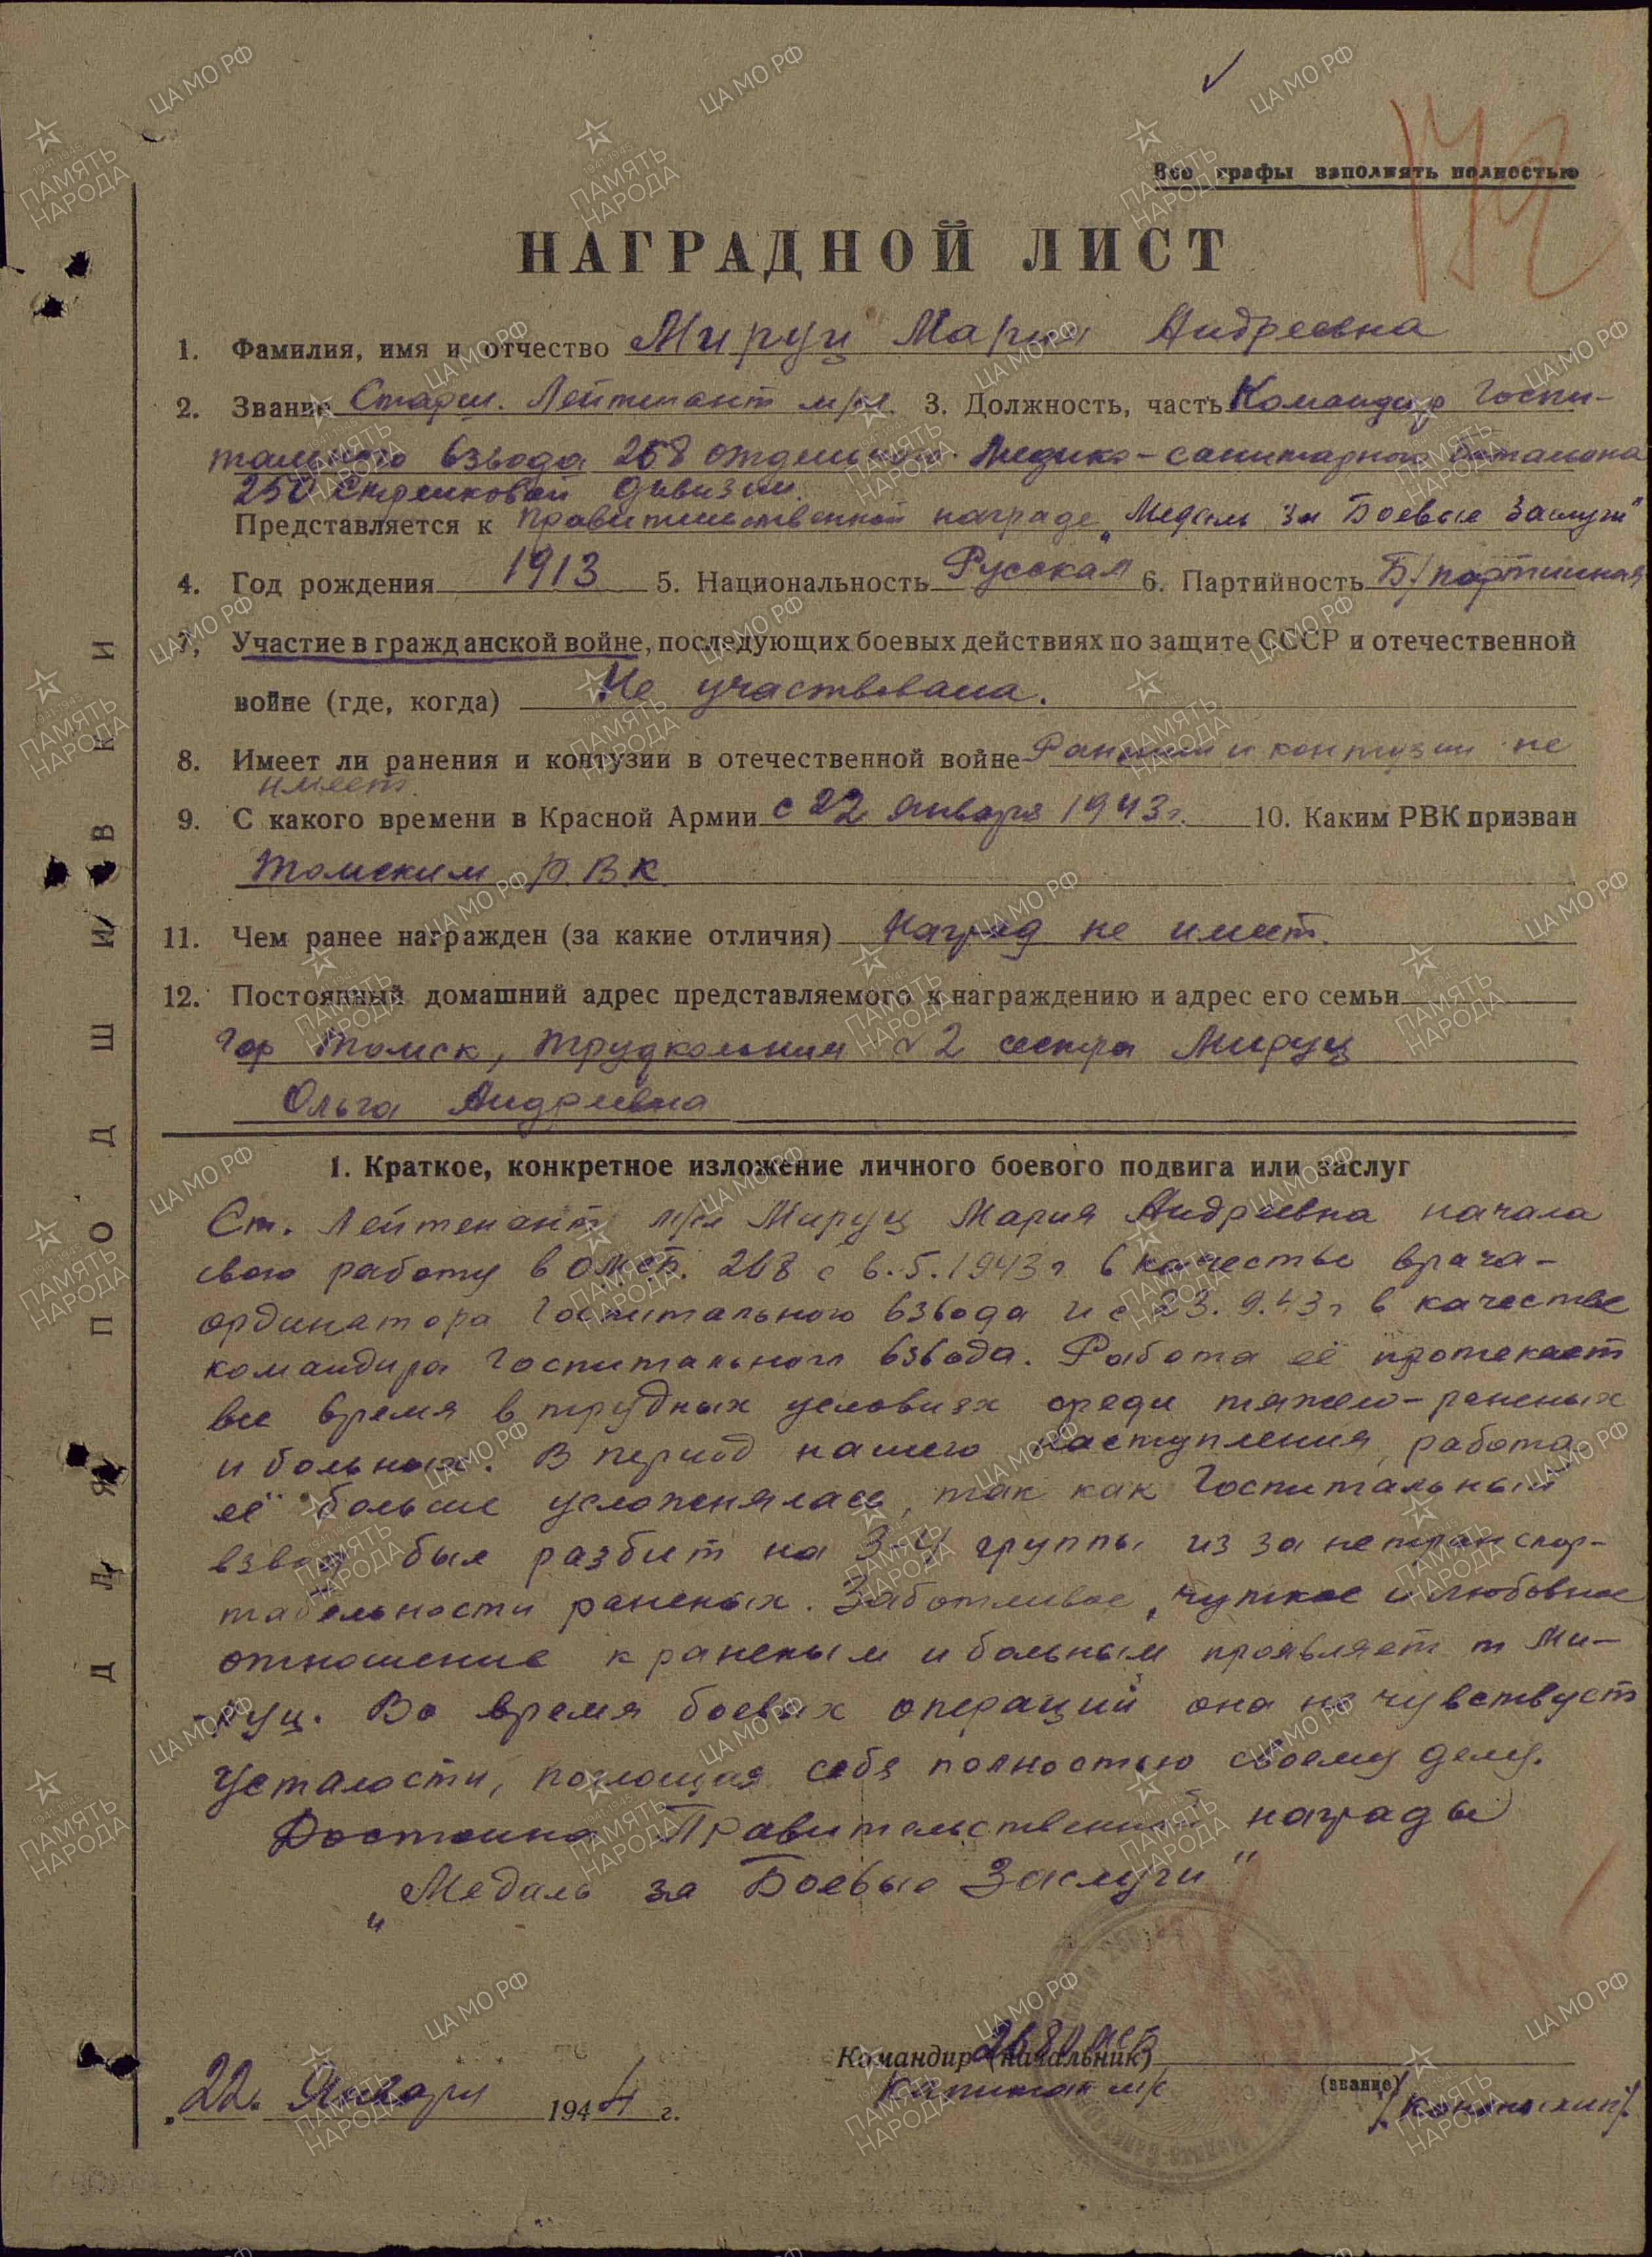 Все графы заполнять полностью
172
НАГРАДНОЙ ЛИСТ
1. Фамилия, имя и отчество Мируц Мария Андреевна
2. Звание Старш. Лейтенант м/сл. 3. Должность, часть Командир Госпи-
тального взвода 268 отдельного Медико-санитарного батальона
250 Стрелковой дивизии.
Представляется к правительственной награде „Медаль За Боевые Заслуги"
4. Год рождения 1913 5. Национальность Русская 6. Партийность Б/партийная
7. Участие в гражданской войне, последующих боевых действиях по защите СССР и отечественной
войне (где, когда) Не участвовала.
8. Имеет ли ранения и контузии в отечественной войне Ранении и контузии не
имеет.
9. С какого времени в Красной Армии с 22 января 1943 г. 10. Каким РВК призван
Томским Р.В.К.
11. Чем ранее награжден (за какие отличия) Наград не имеет.
12. Постоянный домашний адрес представляемого к награждению и адрес его семьи
Гор Томск, Трудколония № 2 сестра Мируц
Ольга Андреевна
1. Краткое, конкретное изложение личного боевого подвига или заслуг
Ст. Лейтенант м/сл Мируц Мария Андреевна начала
свою работу в ОМСБ. 268 с 6.5.1943 г в качестве врача-
ординатора Госпитального взвода и с 23.9.43 г в качестве
командира Госпитального взвода. Работа её протекает
все время в трудных условиях среди тяжело-раненых
и больных. В период нашего наступления работа
её больше усложнялась, так как Госпитальный
взвод был разбит на 3-4 группы из за нетранспор-
табельности раненых. Заботливое, чуткое и любовное
отношение к раненым и больным проявляет т Ми-
руц. Во время боевых операций она не чувствует
усталости, поглощая себя полностью своему делу.
Достойна Правительственной награды
„Медаль за Боевые Заслуги"
Командир (начальник) 268 ОМСБ
Капитан м/с (звание)
„22" Января 1944 г.
ДЛЯ ПОДШИВКИ
ЦА МО РФ
1941-1945
ПАМЯТЬ
НАРОДА